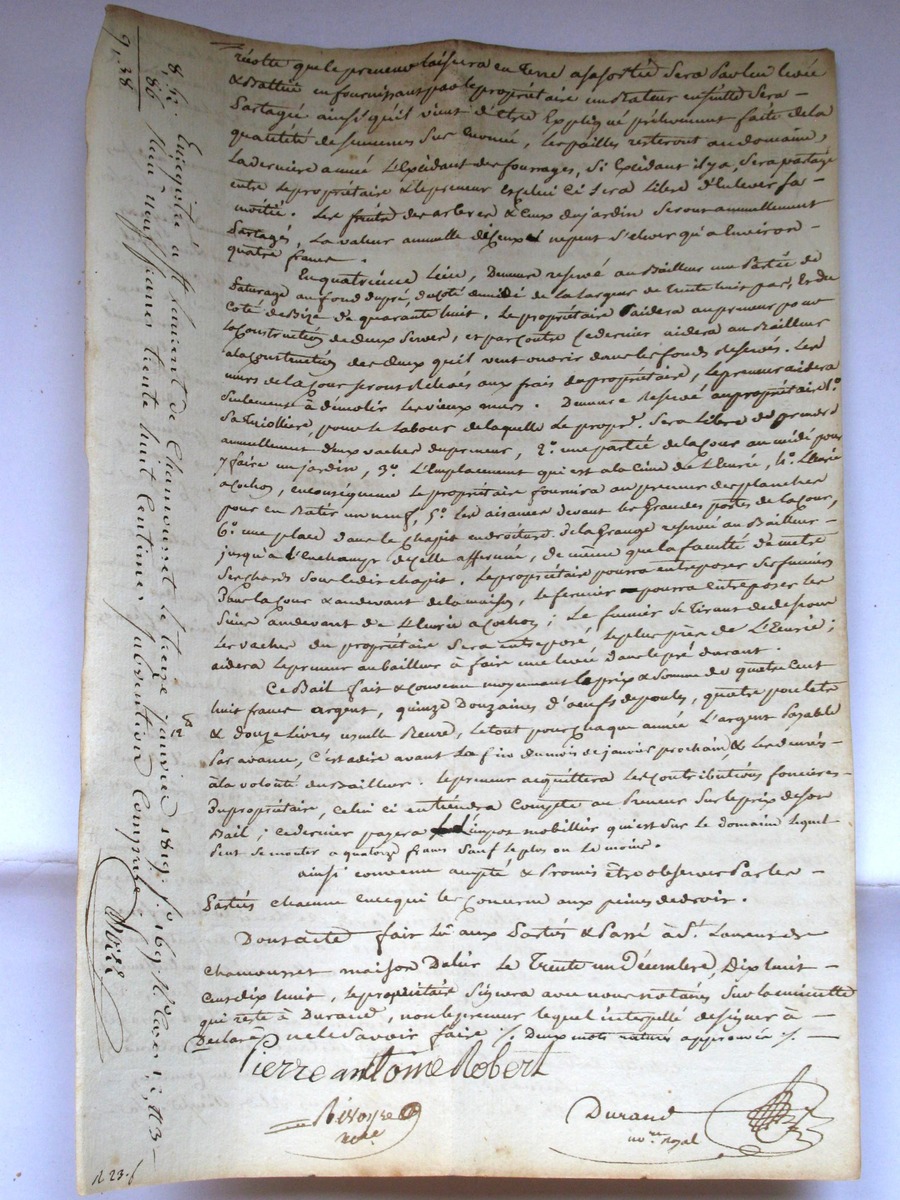 récolte que le preneur laissera en terre a sa sortie sera par lui levée
& Battue en fournissant par le propriétaire un Bateur ensuitte sera
Partagée ainsi qu'il vient d'être Expliqué prélevement faite de la
quantité de semences sur , les pailles resteront au domaine,
La derniere année L'Exédant des fourrages, si Exédant il y a, sera partagé
entre Le propriétaire & Le preneur & celui ci sera Libre d'Enlever sa
moitié. Les fruits des arbres & Ceux du jardin seront annuellement
Partagés, La valeur annuelle d'iceux ne peut s'elever qu'a Environ
quatre francs.
En quatrieme Lieu, Demeure reservé au Bailleur une Partie de
Paturage au fond du pré, du Coté du midi de La Largeur de Trente huit pas, Et du
Coté de Bize de quarante huit. Le propriétaire aidera au preneur pour
La Construction de deux , et par Contre Ce dernier aidera au Bailleur
a la Construction des deux qu'il veut ouvrir dans les fonds Reservés. Les
murs de la Cour seront Relevés aux frais du propriétaire, Le preneur aidera
seulement à démolir Les vieux murs. Demeure Reservé au propriétaire 1.º
sa Triollière, pour le Labour de laquelle Le propre. sera Libre de prendre
annuellement deux vaches du preneur, 2.º une partie de la Cour au midi pour
y faire un jardin, 3.º L'Emplacement qui est a la Cime de L'Eurie, 4.º L'Eurie
a Cochon, en conséquence Le propriétaire fournira au preneur des planches
pour en un neuf, 5.º Les aisances devant les Grandes portes de la Cour,
6.º une place dans le Chapit en droiture de la Grange reservée au Bailleur
jusqu'à d'icelle affermée, de même que la faculté de mettre
ses chards sous le dit chapit. Le propriétaire pourra entreposer ses fumiers
Dans la Cour & au devant de la maison, le fermier pourra entreposer les
Siens au devant de L'Eurie a Cochon; Le fumier se Tirant de dessous
Les vaches du propriétaire sera entreposé Le plus près de L'Eurie;
aidera Le preneur au bailleur à faire une Levée dans le pré durant.
Ce Bail fait & Convenu moyennant le prix & Somme de quatre Cent
huit francs argent, quinze Douzaines d'oeufs de poules, quatre poulets
& douze Livres usuelle Beurre, Le tout pour Chaque année L'argent Payable
Par avance, C'est a dire avant La fin du mois de janvier prochain, & Les denrés
à la volonté du Bailleur. Le preneur acquittera Les Contributions foncieres
Du propriétaire, Celui ci entiendra Compte au Preneur sur le prix de son
Bail; Ce dernier payera L'impot mobillier qui est sur Le domaine Lequel
Peut se monter a quatorze francs sauf le plus ou le moins.
ainsi convenu accepté & Promis être observer Par les
Partiés chacune en ce qui les Concerne aux peines de droit.
Dont acte fait Lû aux Partiés & Passé à St. Laurent de
Chamousset maison Delir Le Trente un Décembre, Dix huit
Cent dix huit, Le propriétaire signera avec nous notaires sur la minutte
qui reste à Durand, non le preneur Lequel interpellé de signer à
Declaré ne le savoir faire ./. Deux mots raturés approuvés ./.
Pierre antoine Robert
Durand
nore royal
8, 52.
,86
9, 38
Enregistré a St Laurent de Chamousset Le treize janvier 1819. fo 169. Ro Cases 1, 2, & 3
Reçu neuf francs trente huit Centimes subvention Comprise